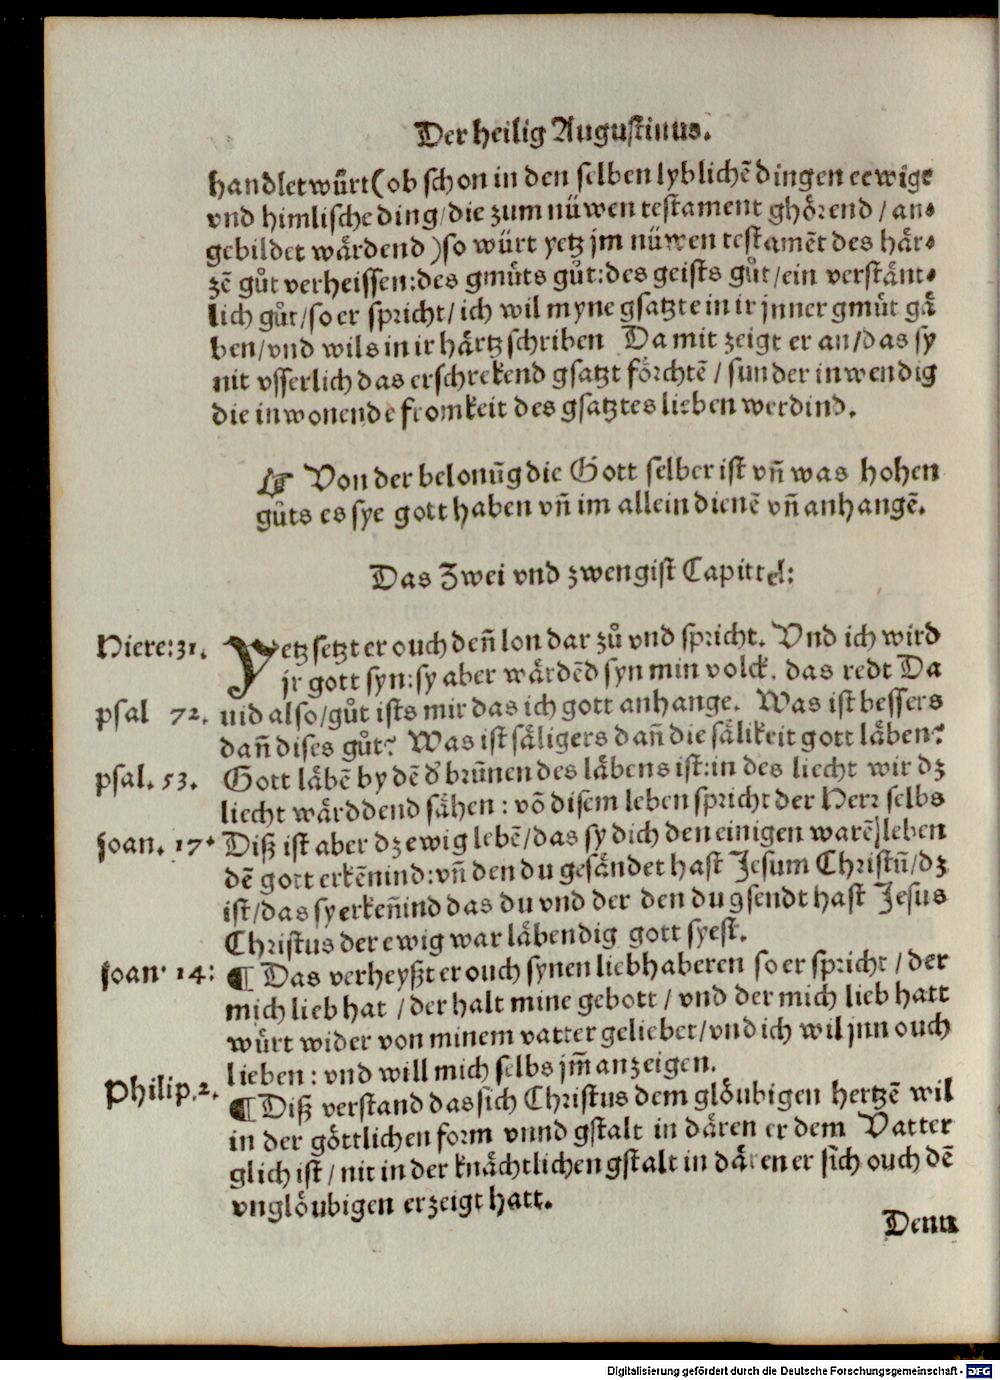 Der heilig Augustinus.
handlet wůrt (ob schon in den selben lyblichē dingen eewige
vnd himlische ding/die zum nüwen testament ghörend / an⸗
gebildet wärdend) so würt yetz jm nüwen testamēt des här⸗
zē gůt verheissen: des gmůts gůt: des geists gůt/ein verstänt⸗
lich gůt/so er spricht/ ich wil myne gsatzte in ir jnner gmůt gä
ben/vnd wils in ir härtz schriben Da mit zeigt er an/das sy
nit vsserlich das erschrekend gsatzt förchtē / sunder inwendig
die inwonende fromkeit des gsatztes lieben werdind.
☞ Von der belonūg die Gott selber ist vñ was hohen
gůts es sye gott haben vñ im allein dienē vñ anhangē.
Das Zwei vnd zwengist Capittel:
Hiere: 31. Yetz setzt er ouch deñ lon dar zů vnd spricht. Vnd ich wird
jr gott syn: sy aber wärdēd syn min volck. das redt Da
psal 72. uid also/gůt ists mir das ich gott anhange. Was ist bessers
dañ dises gůt? Was ist säligers dañ die sälikeit gott läben?
psal. 53. Gott läbē by dē d' brūnen des läbens ist: in des liecht wir dz
liecht wärddend sähen: vō disem leben spricht der Herr selbs
Joan. 17. Diß ist aber dz ewig lebē/das sy dich den einigen warē) leben
dē gott erkēnind: vñ den du gesändet hast Jesum Christū/dz
ist/das sy erkeñind das du vnd der den du gsendt hast Jesus
Christus der ewig war läbendig gott syest.
Joan. 14: ¶ Das verheyßt er ouch synen liebhaberen so er spricht / der
mich lieb hat / der halt mine gebott / vnd der mich lieb hatt
würt wider von minem vatter geliebet/vnd ich wil jnn ouch
lieben: vnd will mich selbs jm̄ anzeigen.
Philip. 2. ¶ Diß verstand das sich Christus dem glöubigen hertzē wil
in der göttlichen form vnnd gstalt in dären er dem Vatter
glich ist / nit in der knächtlichen gstalt in dären er sich ouch dē
vnglöubigen erzeigt hatt.
Denn
Digitalisierung gefördert durch die Deutsche Forschungsgemeinschaft - DFG